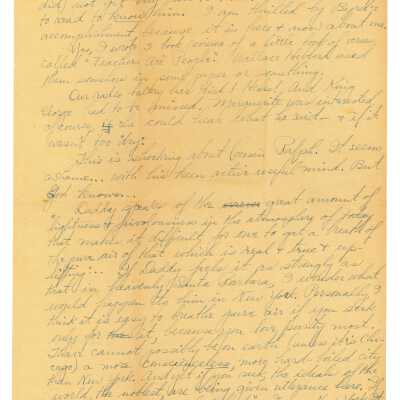 did) not get any
to read to know him. I am thrilled by Byrd's
accomplishment because it is here & now about me.
Yes, I wrote 3 book reviews of a little book of verse
called "Teachers Are People". Wallace Hebberd used
them someone in some paper or something.
Our radio battery has died! Alas! And King
George had to be missed. Marguerite was interested,
of course, if she could hear what he said - & if it
wasn't too dry.
This is shocking about Cousin Ralph. It seems
a shame... with his keen active useful mind. But
God knows...
Daddy speaks of the great amount of
lightness & frivolousness in the atmosphere of today
that makes it difficult for one to get a breath of
the pure air of that which is real & true & up-
lifting... If Daddy feels it so strongly as
that in heavenly Santa Barbara, I wonder what
would happen to him in New York. Personally I
think it is easy to breathe pure air if you seek
only for it, because you love purity most.
There cannot possibly be on earth (unless it is Chi-
cago) a more conscienceless, more hard boiled city
than New York. And yet if you seek, the ideals of the
world, the noblest, are being given utterance here. If